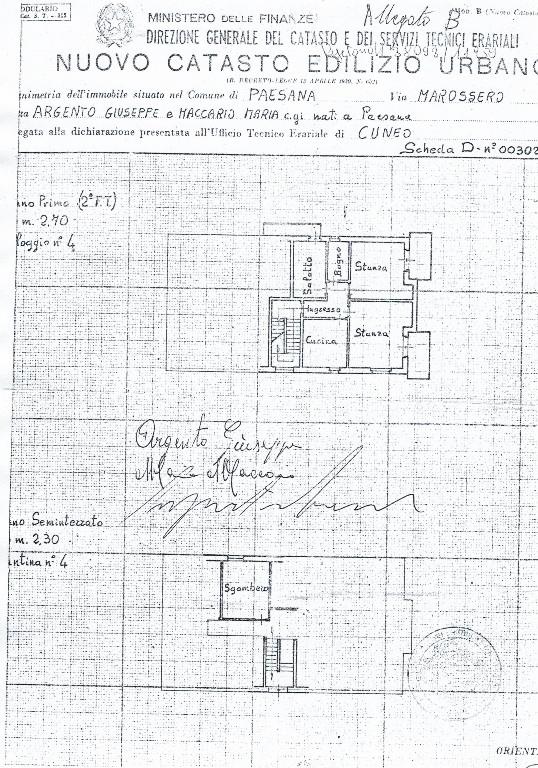 ODULARIO
Cat. S. T. - 315
MINISTERO DELLE FINANZE
Allegato B
MOD. B (Nuovo Catasto
DIREZIONE GENERALE DEL CATASTO E DEI SERVIZI TECNICI ERARIALI
NUOVO CATASTO EDILIZIO URBANO
(R. DECRETO-LEGGE 13 APRILE 1939, N. 652)
nimetria dell'immobile situato nel Comune di PAESANA Via MAROSSERO
ARGENTO GIUSEPPE e MACCARIO MARIA c.gi nati a Paesana
egata alla dichiarazione presentata all'Ufficio Tecnico Erariale di CUNEO
Scheda D-n° 00302
ano Primo (2° F.T.)
m. 2,70
lloggio n° 4
Salotto
Bagno
Stanza
Ingresso
Cucina
Stanza
Argento Giuseppe
ano Seminterrato
m. 2,30
antina n° 4
Sgombero
ORIENT